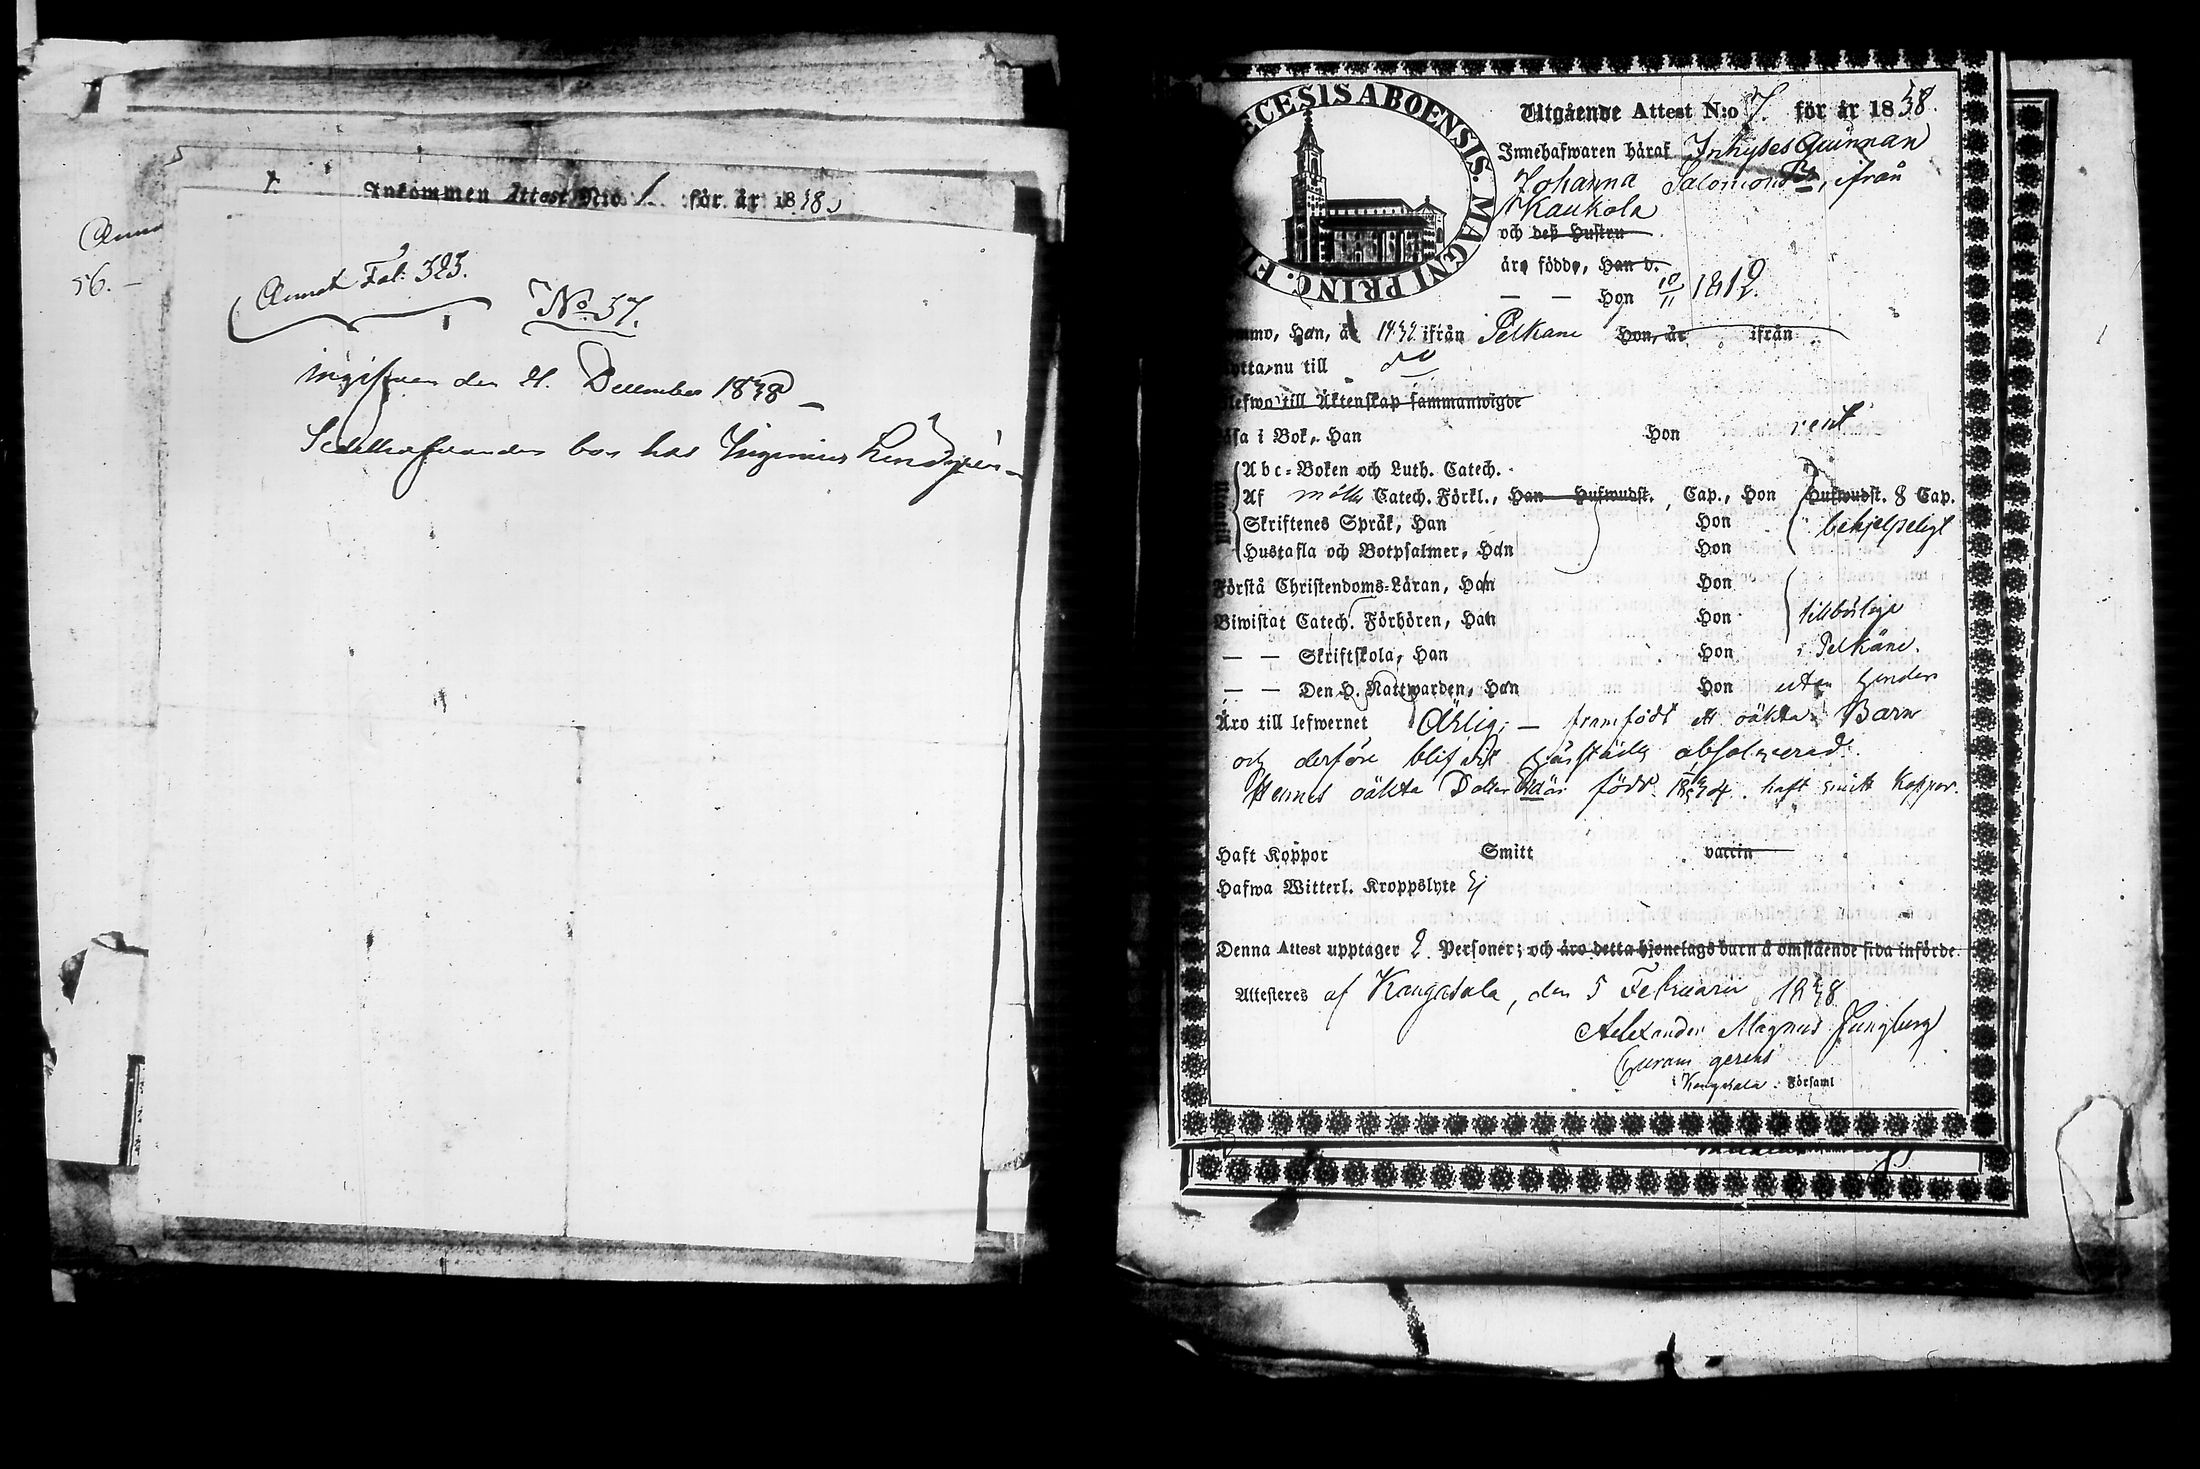 Inkommen Attest N:o 1. för år 1838.
56.
Annot Fol: 323.
No 37.
ingifven den 21. December 1838
bor hos
DIOECESIS ABOENSIS. MAGNI PRINC. FI
Utgående Attest N:o 7. för år 1838.
Innehafwaren häraf Inhyses Quinnan
Johanna Salomonsdr, ifrån
Kaukola
och deß Hustru
äro födde, Han d.
— — Hon 10/11 1812.
Han, år 1832 ifrån Pelkäne Hon, år ifrån
nu till
till Äktenskap sammanwigde
i Bok, Han Hon rent
Abc-Boken och Luth. Catech.
Af Catech. Förkl., Han Hufwudst. Cap., Hon Hufwudst. 8 Cap.
Skriftenes Språk, Han Hon behjelpeligt
Hustafla och Botpsalmer, Han Hon
Förstå Christendoms-Läran, Han Hon
Biwistat Catech. Förhören, Han Hon
— — Skriftskola, Han Hon i Pelkäne.
— — Den H. Nattwarden, Han Hon utan hinder
Äro till lefwernet Ärlig; — framfödt ett oäkta Barn
och derföre blifvit absolverad.
Hennes oäkta Dotter född haft smitt koppor.
Haft Koppor Smitt vaccin
Hafwa Witterl. Kroppslyte Ej
Denna Attest upptager 2 Personer; och äro detta hjonelags barn å omstående sida införde.
Attesteres af Kangasala, den 5 Februarii 1838
Alexander Magnus Ljungberg
Curam gerens
i Kangasala Församl